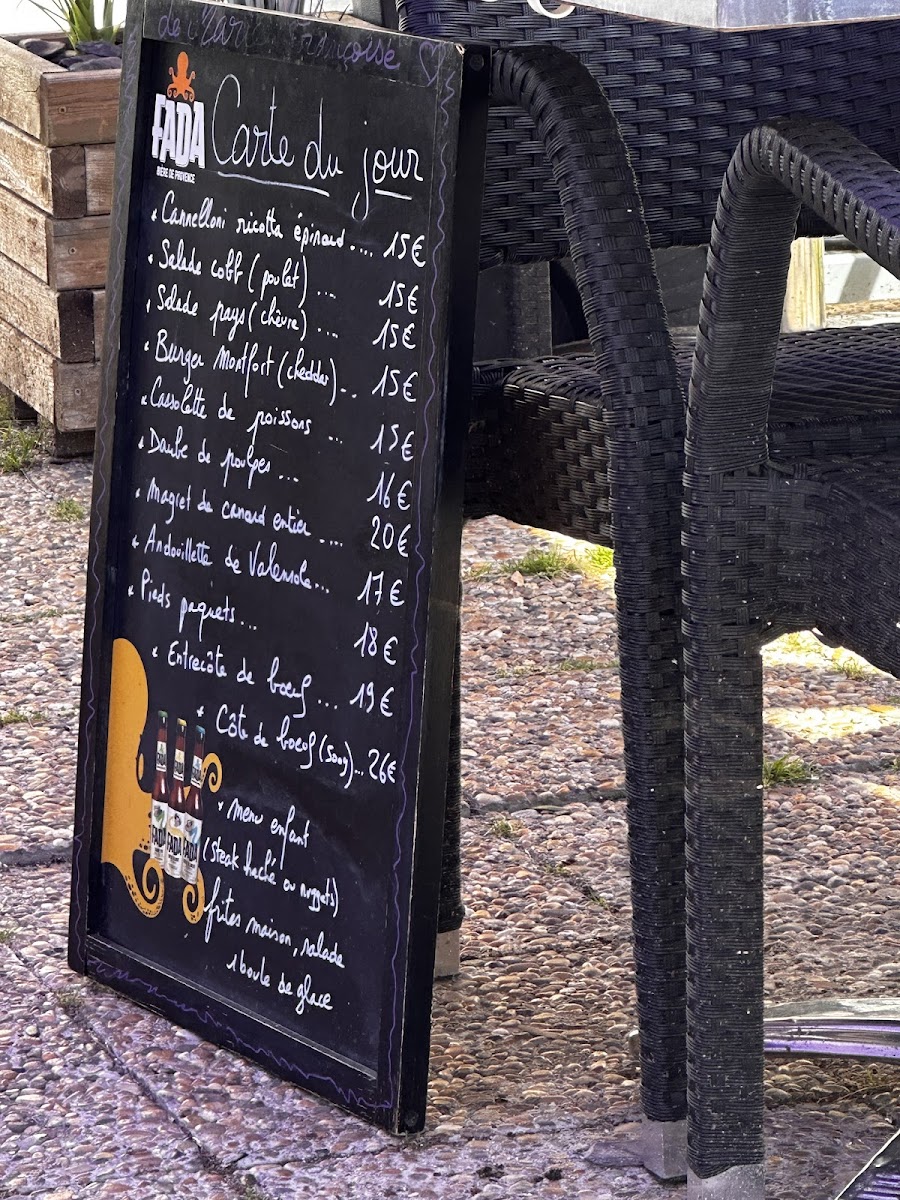 de Marie Françoise
FADA
BIÈRE DE PROVENCE
Carte du jour
* Cannelloni ricotta épinard .... 15€
* Salade cobb (poulet) .... 15€
* Salade pays (chèvre) .... 15€
* Burger Montfort (cheddar) .. 15€
* Cassolette de poissons ... 15€
* Daube de poulpes ... 16€
* Magret de canard entier .... 20€
* Andouillette de Valensole ... 17€
* Pieds paquets ... 18€
* Entrecôte de boeuf ... 19€
* Côte de boeuf (500g) ... 26€
* menu enfant
(steak haché ou nuggets)
frites maison, salade
1 boule de glace
FADA FADA FADA